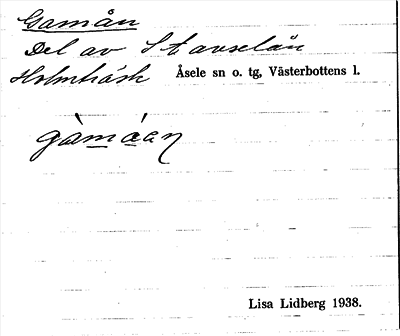 Gamån
Del av Stavselån
Holmträsk Åsele sn o. tg, Västerbottens l.
gàmáan
Lisa Lidberg 1938.